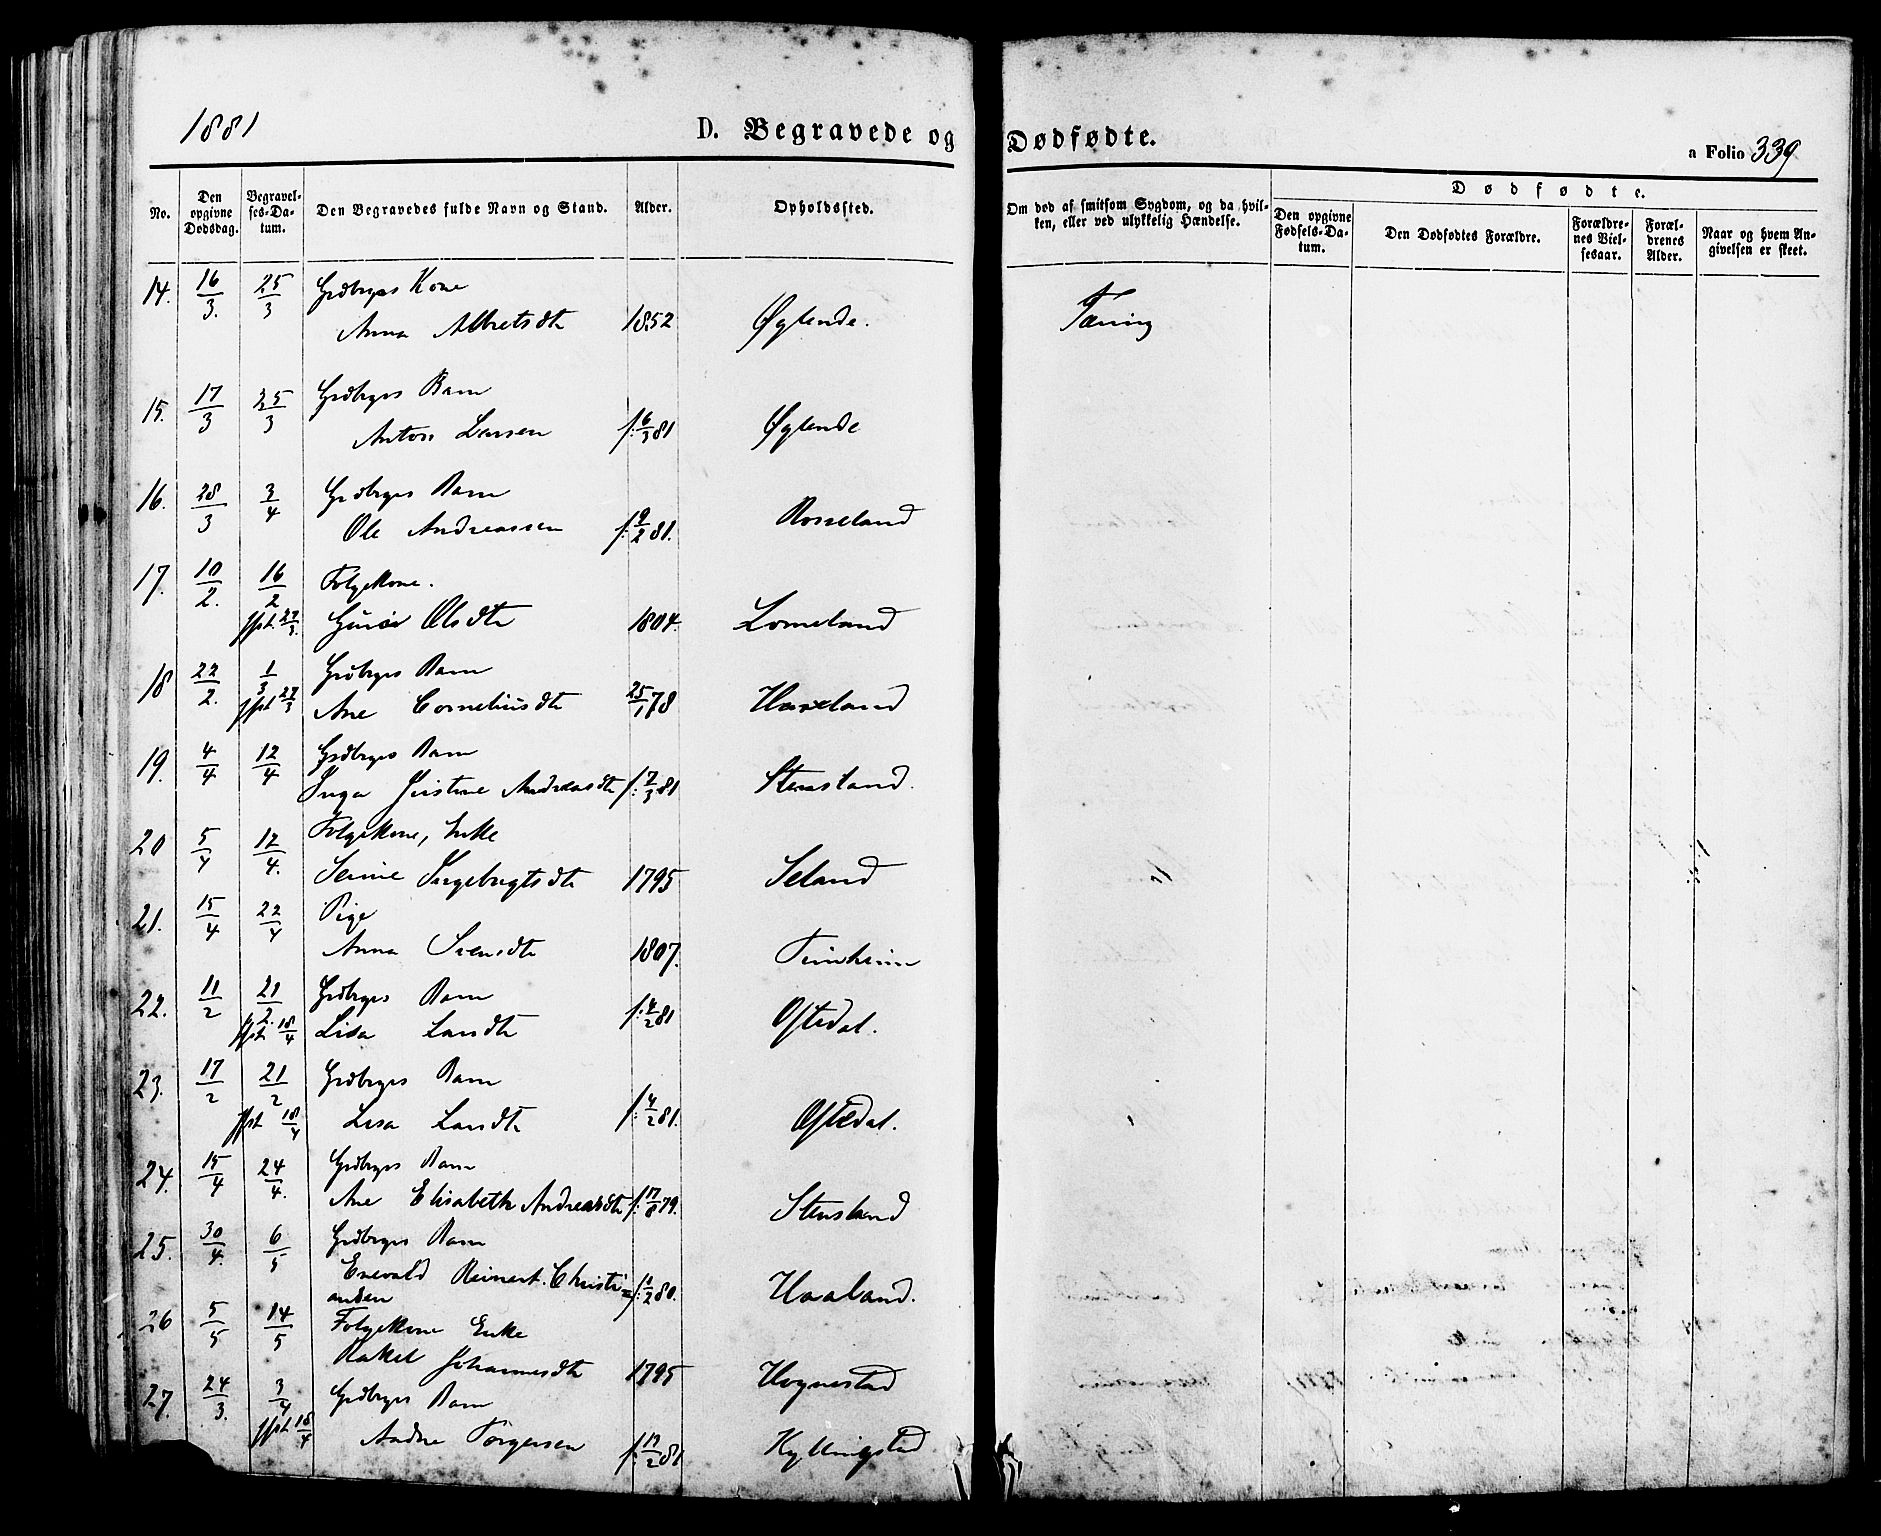 1881
D. Begravede og Dødfødte.
a Folio 339
No.
Den opgivne Dødsdag.
Begravelses-Datum.
Den Begravedes fulde Navn og Stand.
Alder.
Opholdssted.
Om død af smitsom Sygdom, og da hvilken, eller ved ulykkelig Hændelse.
Dødfødte.
Den opgivne Fødsels-Datum.
Den Dødfødtes Forældre.
Forældrenes Vielsesaar.
Forældrenes Alder.
Naar og hvem Angivelsen er skeet.
14. 16/3. 25/3 Grdbrges Kone
Anna Albretsdtr 1852 Øglende. Tæring
15. 17/3 25/3 Grdbrges Barn
Anton Larsen f. 6/3 81 Øglende
16. 28/3 3/4 Grdbrges Barn
Ole Andreassen f. 9/2 81. Rosseland
17. 10/2. 16/2 Folgekone.
jfpt. 27/3. Guroe Olsdtr 1804. Lomeland
18 22/2. 1/3 Grdbrges Barn
jfpt 27/3 Ane Corneliusdtr 25/1 78 Haveland
19. 4/4 12/4 Grdbrges Barn
Inga Jirstine Andreasdtr f. 7/3 81 Stensland.
20 5/4 12/4. Folgekone, Enke
Serine Ingebrigtsdtr 1795 Seland
21. 15/4 22/4 Pige
Anna Svensdtr 1807. Tunheim
22. 11/2 21/2. Grdbrges Barn
jfpt. 18/4 Lisa Larsdtr f. 4/2 81 Oftedal.
23. 17/2 21/2 Grdbrges Barn
jfpt 18/4 Lisa Larsdtr f. 4/2 81. Oftedal.
24. 15/4 24/4. Grdbrges Barn
Ane Elisabeth Andreasdtr f. 17/8 79. Stensland
25. 30/4. 6/5 Grdbrges Barn
Enevald Reinert Christi=
ansen f. 1/2 80. Haaland.
26 5/5 14/5 Folgekone Enke
Rakel Johannesdtr 1795 Hognestad
27. 24/3. 3/4 Grdbrges Barn
jfpt. 18/4 Andre Torgersen f. 17/2 81 Kyllingstad